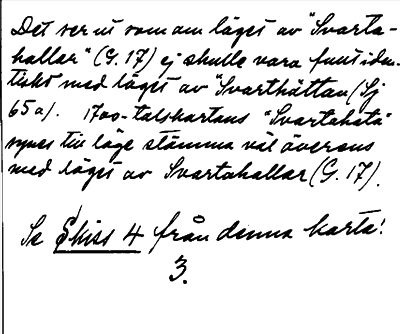 Det ser ut som om läget av "Svarta-
hallar" (G. 17) ej skulle vara fullt iden-
tiskt med läget av "Svarthättan (Sj
65a). 1700-talskartans "Svartahata"
synes till läge stämma väl överens
med läget av Svartahallar (G. 17).
Se Skiss 4 från denna karta!
3.